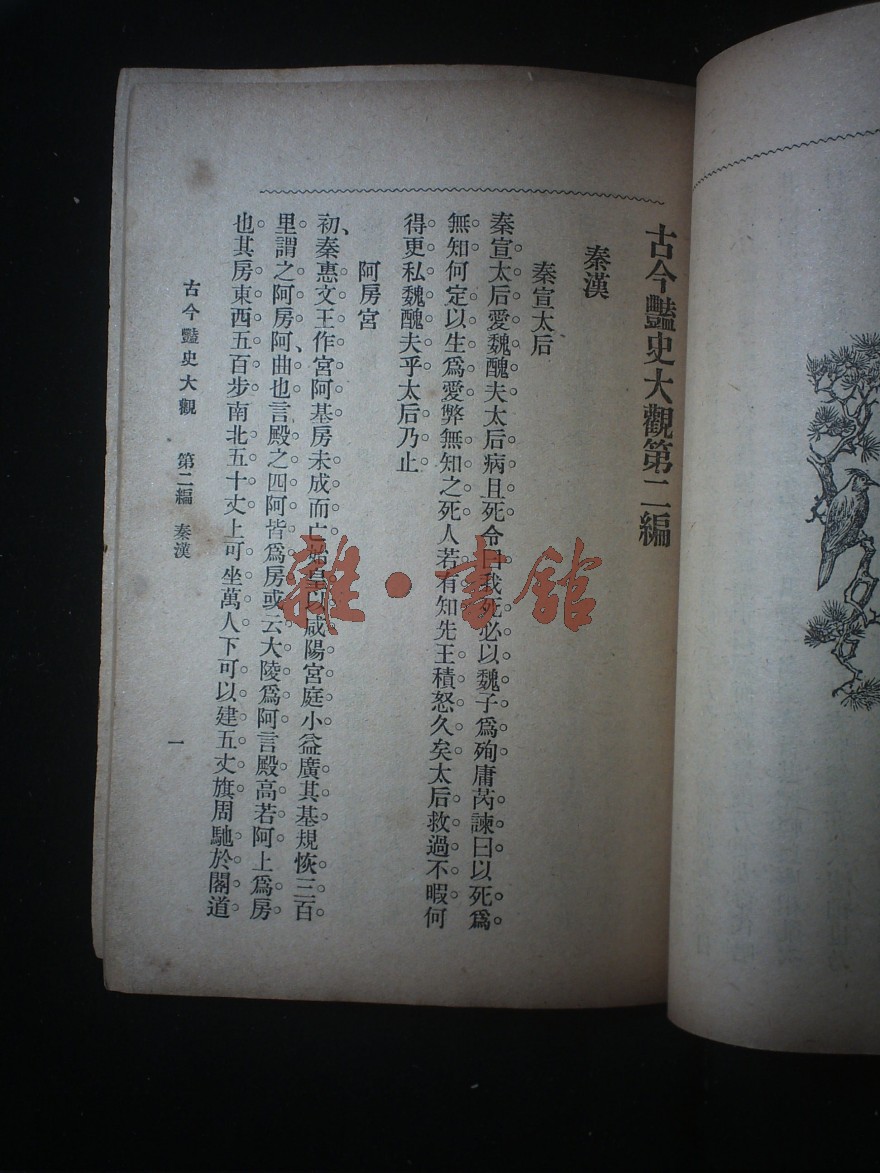 古今豔史大觀第二編
秦漢
秦宣太后
秦宣太后愛魏醜夫太后病且死令曰我死必以魏子爲殉庸芮諫曰以死爲
無知何定以生爲愛弊無知之死人若有知先王積怒久矣太后救過不暇何
得更私魏醜夫乎太后乃止
阿房宮
初、秦惠文王作宮阿基房未成而亡始皇以咸陽宮庭小益廣其基規恢三百
里謂之阿房阿、曲也言殿之四阿皆爲房或云大陵爲阿言殿高若阿上爲房
也其房東西五百步南北五十丈上可坐萬人下可以建五丈旗周馳於閣道
古今豔史大觀 第二編 秦漢
一
雜·書館